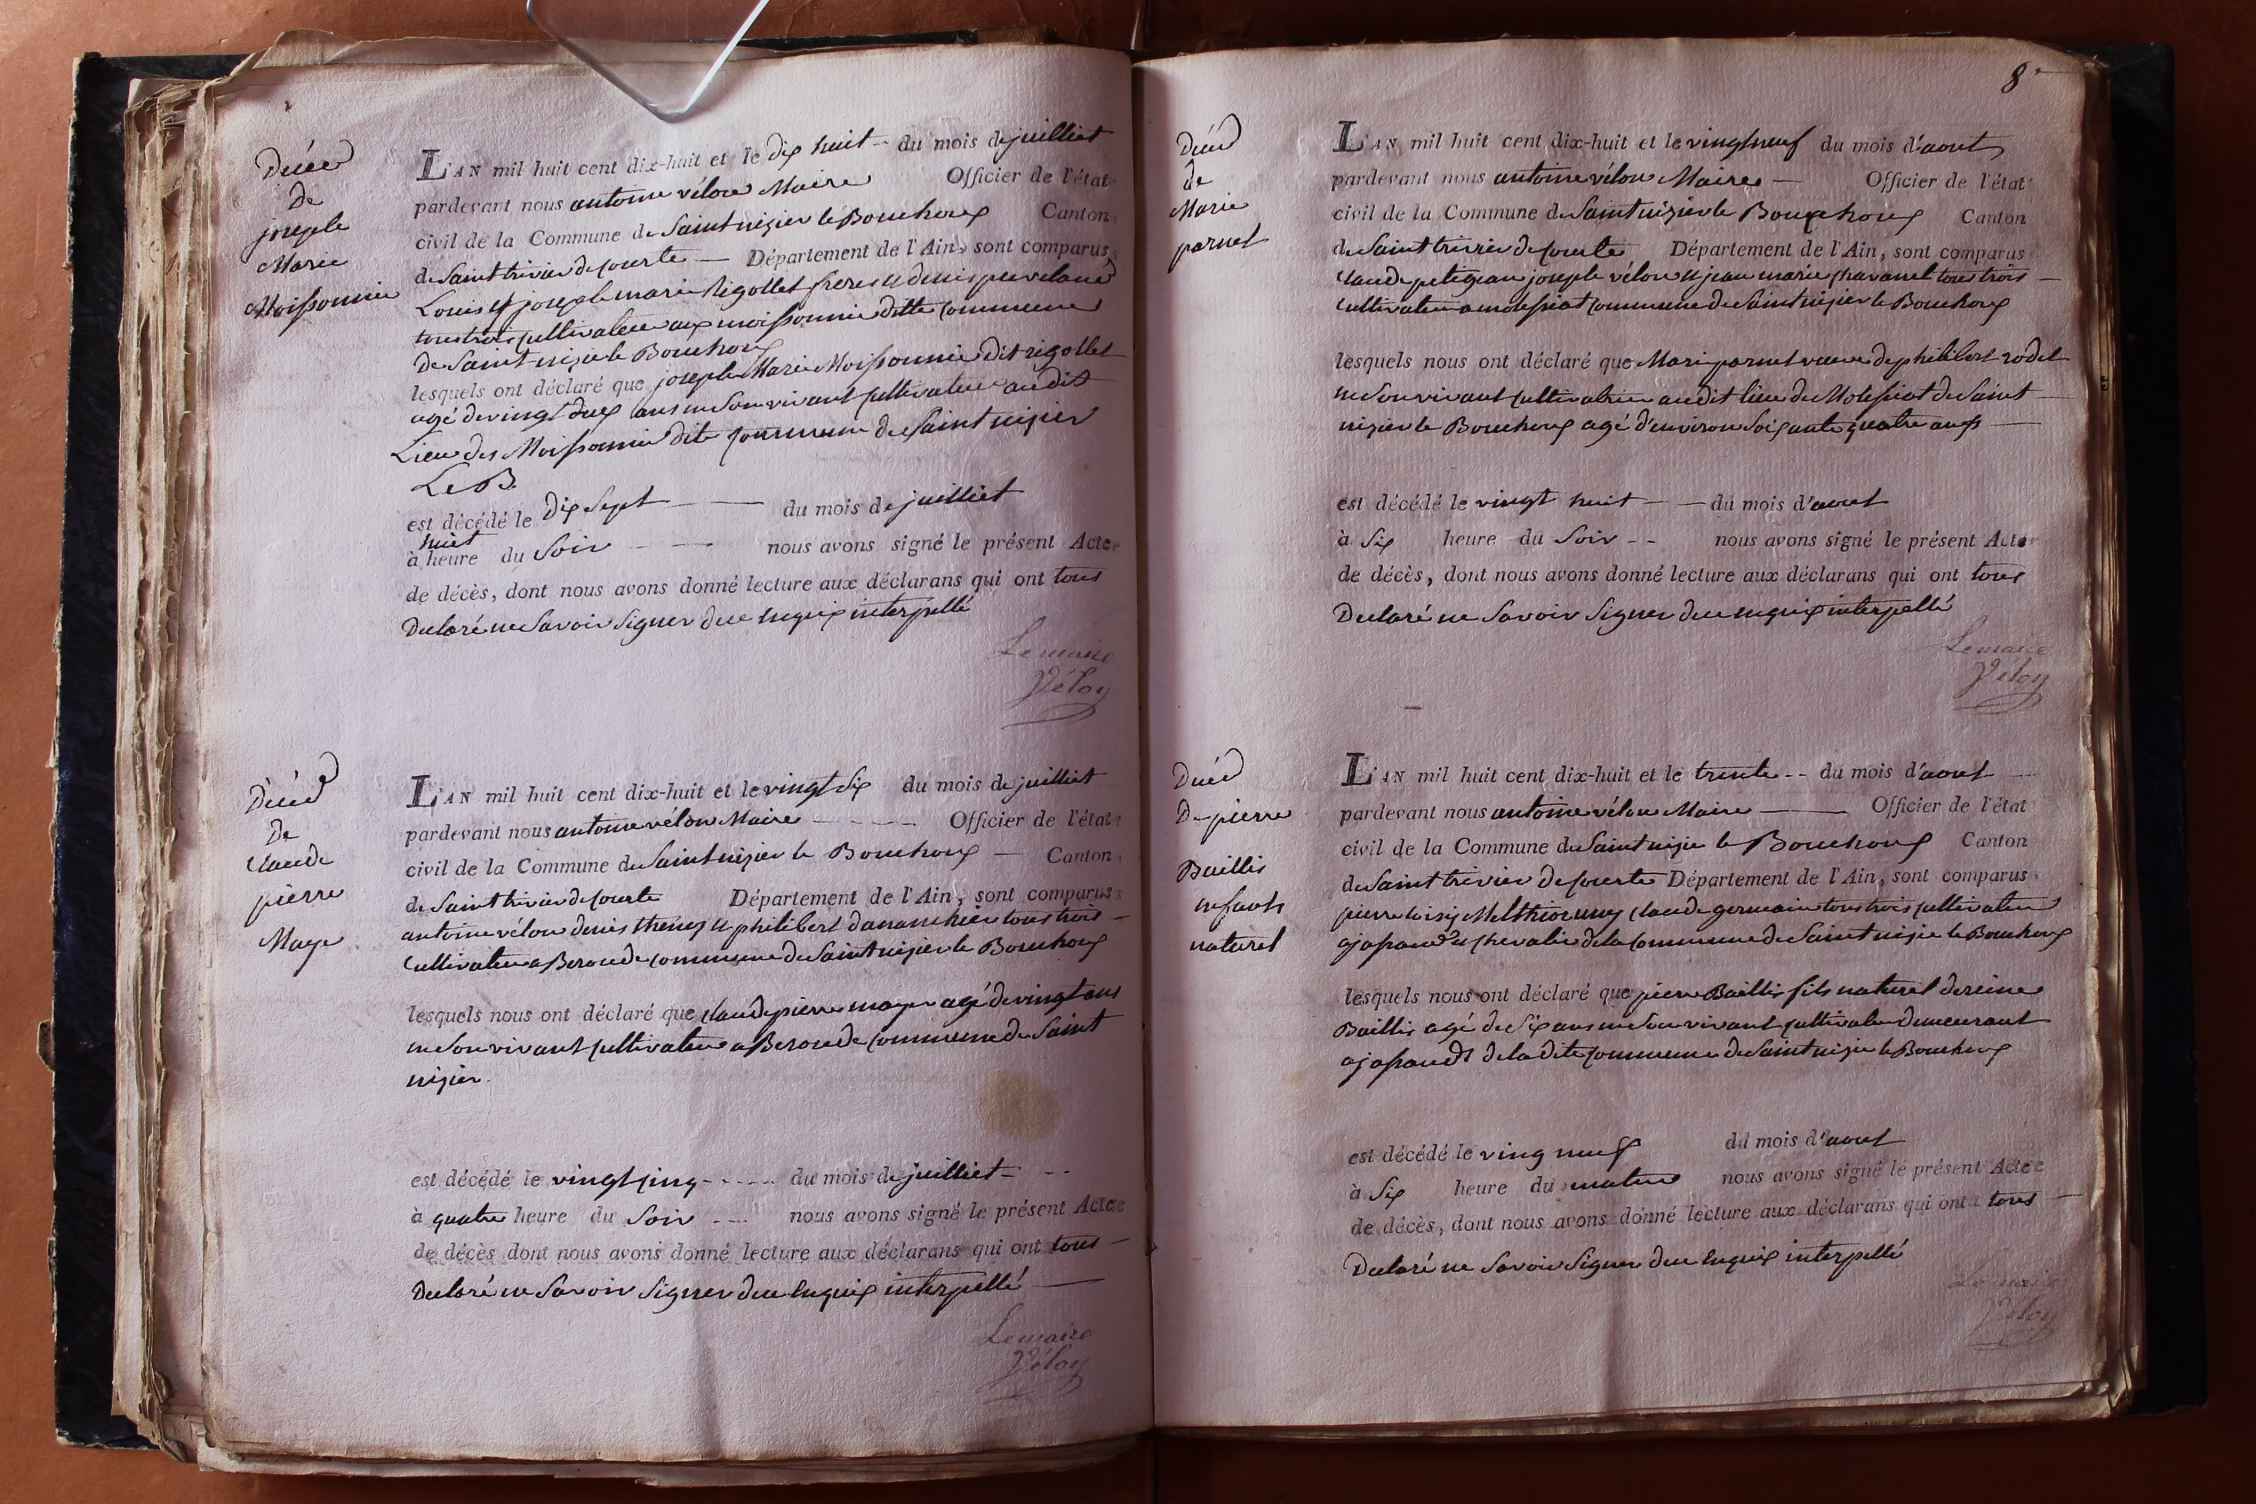 Décés
de
joseph
Marie
Moissonnier
L'AN mil huit cent dix-huit et le dix huit du mois de juilliet
pardevant nous antoine vélon Maire Officier de l'état
civil de la Commune de Saint nizier le Bouchoux Canton
de Saint trivier de courte Département de l'Ain, sont comparus
Louis et joseph marie Rigollet freres et denis
tous trois cultivateur aux moissonnier ditte commune
de Saint nizier le Bouchoux
lesquels ont déclaré que joseph Marie Moissonnier dit rigollet
agé de vingt deux ans en Son vivant cultivateur audit
Lieu des Moissonnier dite commune de Saint nizier
Le B.
est décédé le dix Sept du mois de juilliet
à huit heure du Soir nous avons signé le présent Acte
de décès, dont nous avons donné lecture aux déclarans qui ont tous
Declaré ne Savoir Signer de ce enquix interpellé
Le maire
Vélon
Décés
de
Claude
pierre
Maye
L'AN mil huit cent dix-huit et le vingt Six du mois de juilliet
pardevant nous antoine vélon Maire Officier de l'état
civil de la Commune de Saint nizier le Bouchoux Canton
de Saint trivier de courte Département de l'Ain, sont comparus
antoine vélon denis thenoz et philibert dananchier tous trois
Cultivateur a Beroude commune de Saint nizier le Bouchoux
lesquels nous ont déclaré que claude pierre maye agé de vingt ans
en Son vivant cultivateur a Beroude commune de Saint
nizier.
est décédé le vingt cinq du mois de juilliet
à quatre heure du Soir nous avons signé le présent Acte
de décès dont nous avons donné lecture aux déclarans qui ont tous
Declaré ne Savoir Signer de ce enquix interpellé
Le maire
Vélon
8
Décés
de
Marie
parnet
L'AN mil huit cent dix-huit et le vingt neuf du mois d'aout
pardevant nous antoine vélon Maire Officier de l'état
civil de la Commune de Saint nizier le Bouchoux Canton
de Saint trivier de courte Département de l'Ain, sont comparus
claude petigean joseph vélon et jean marie chavanel tous trois
Cultivateur a molessiat commune de Saint nizier le Bouchoux
lesquels nous ont déclaré que Marie parnet veuve de philibert rodet
en Son vivant cultivatrice audit lieu de Molessiat de Saint
nizier le Bouchoux agé d'environ Soixante quatre ans
est décédé le vingt huit du mois d'aout
à Six heure du Soir nous avons signé le présent Acte
de décès, dont nous avons donné lecture aux déclarans qui ont tous
Declaré ne Savoir Signer de ce enquix interpellé
Le maire
Vélon
Décés
De pierre
Baillis
enfant
naturel
L'AN mil huit cent dix-huit et le trente du mois d'aout
pardevant nous antoine vélon Maire Officier de l'état
civil de la Commune de Saint nizier le Bouchoux Canton
de Saint trivier de courte Département de l'Ain, sont comparus
pierre loisy claude germain tous trois cultivateur
chevalier de la commune de Saint nizier le Bouchoux
lesquels nous ont déclaré que pierre Baillis fils naturel de reine
Baillis agé de Six ans en Son vivant cultivateur demeurant
de la dite commune de Saint nizier le Bouchoux
est décédé le ving neuf du mois d'aout
à Six heure du matin nous avons signé le présent Acte
de décès, dont nous avons donné lecture aux déclarans qui ont tous
Declaré ne Savoir Signer de ce enquix interpellé
Le maire
Vélon